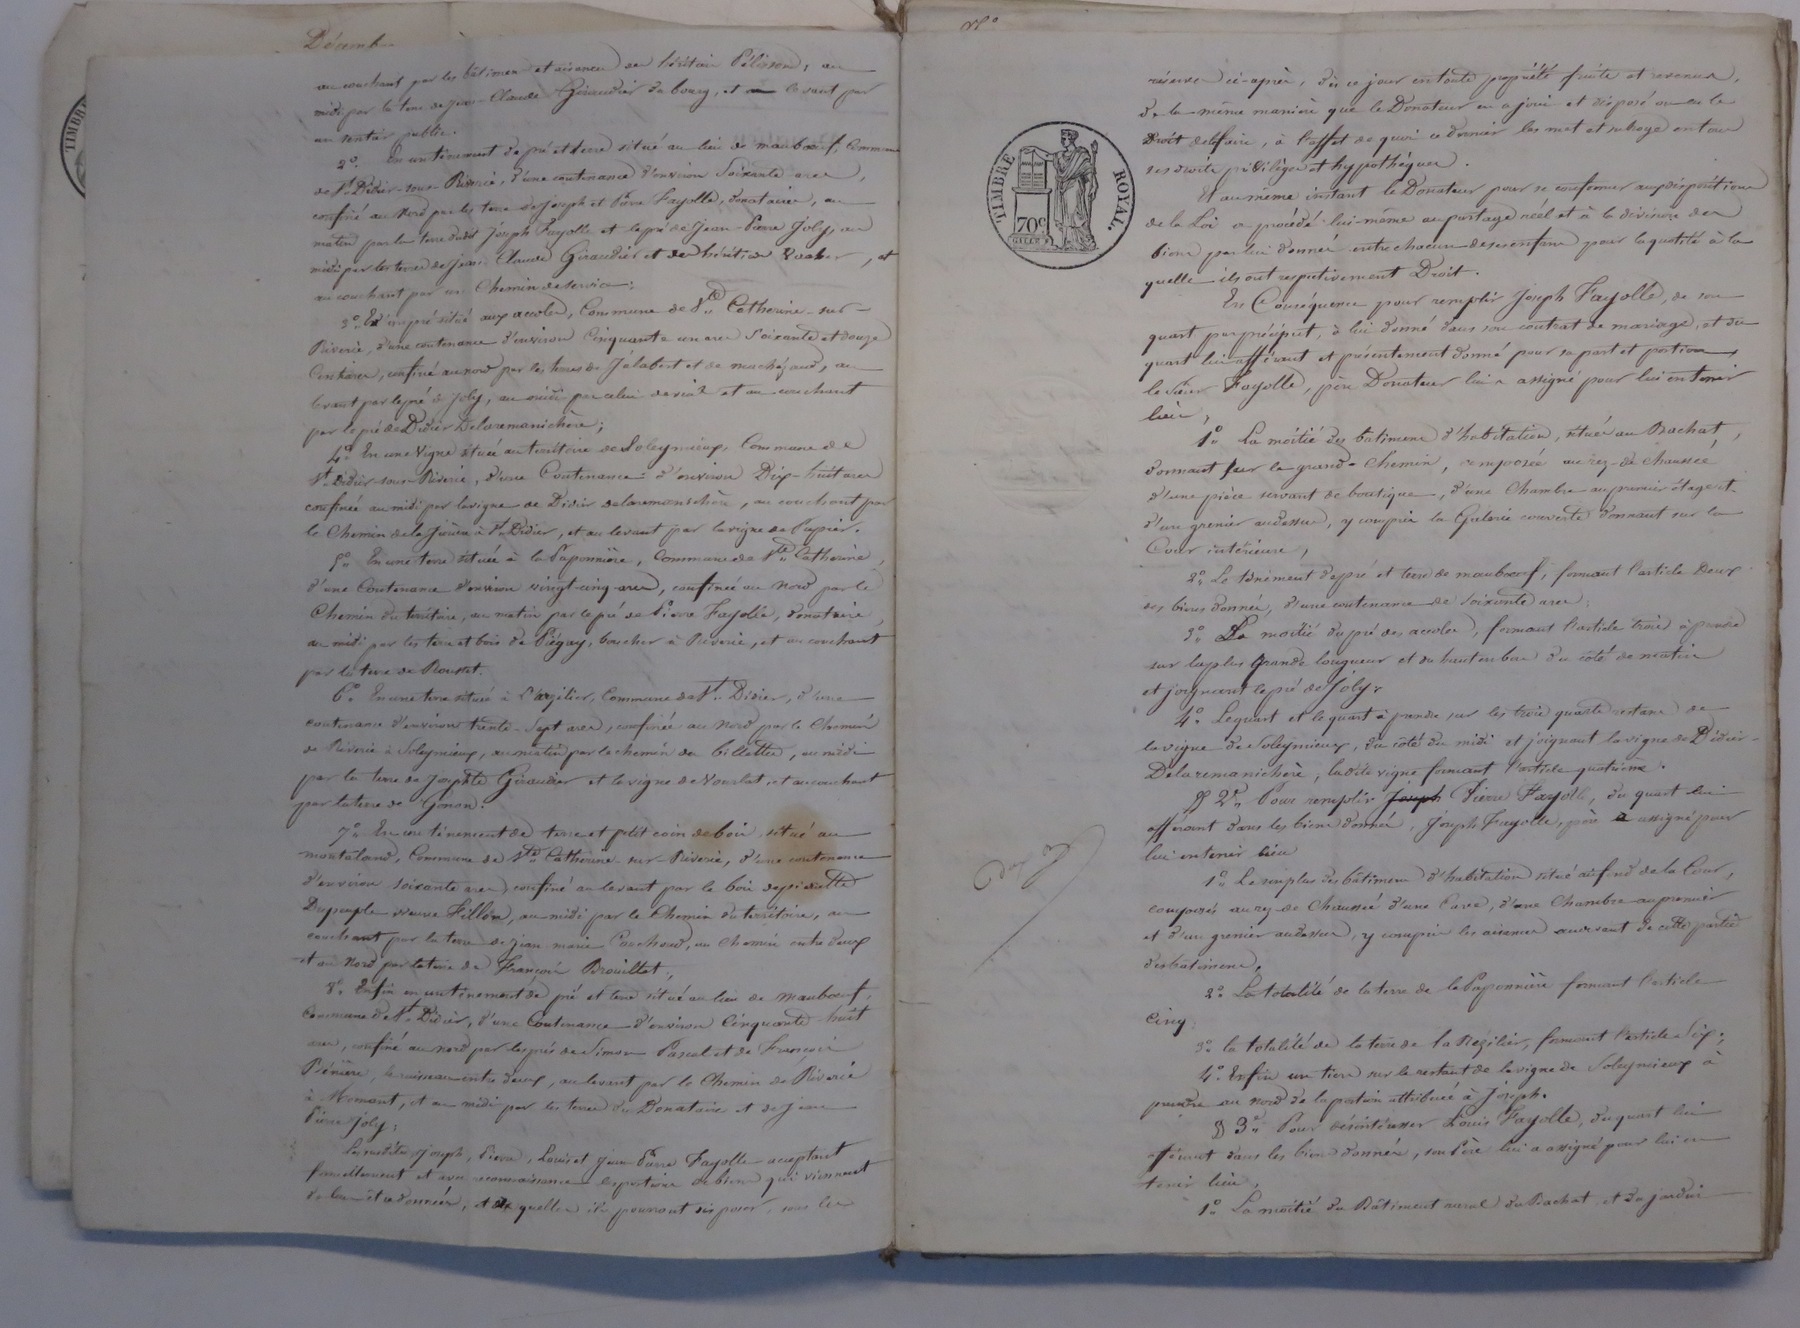 Décembre
au couchant par les bâtimens et aisances des héritiers Pélisson, au
midi par la terre de Jean-Claude Giraudier du bourg, et au levant par
un sentier public.
2° En un tènement de pré et terre situé au lieu de maubœuf, Commune
de St. Didier-sous-Riverie, d'une contenance d'environ Soixante ares,
confiné au Nord par les terres de Joseph et Pierre Fayolle, donataires, au
matin par la terre dudit Joseph Fayolle et le pré de Jean-Pierre Joly, au
midi par les terres de Jean Claude Giraudier et des héritiers, et
au couchant par un Chemin de service;
3° En un pré situé aux accoles, Commune de Ste Catherine-sur-
Riverie, d'une contenance d'environ Cinquante un ares Soixante et douze
Centiares, confiné au nord par les de Jalabert et de, au
levant par le pré de Joly, au midi par celui de et au couchant
par le pré de Didier Delaremanichère;
4° En une Vigne située au territoire de Soleymieux, Commune de
St. Didier-sous-Riverie, d'une Contenance d'environ Dix-huit ares
confinée au midi par la vigne de Didier delaremanichère, au couchant par
le Chemin de la à St. Didier, et au levant par la vigne de Papier.
5° En une terre située à la Paponnière, Commune de Ste Catherine,
d'une Contenance d'environ vingt-cinq ares, confinée au Nord par le
Chemin du territoire, au matin par le pré de Pierre Fayolle, donataire,
au midi par les terre et bois de Pégay, boucher à Riverie, et au couchant
par la terre de Rousset.
6° En une terre située à L'argilier, Commune de St. Didier, d'une
contenance d'environ trente-Sept ares, confinée au Nord par le Chemin
de Riverie à Soleymieux, au matin par le chemin des billettes, au midi
par la terre de Joseph Giraudier et la vigne de, et au couchant
par la terre de Gonon.
7° En un tènement de terre et petit coin de bois, situé au
montaland, Commune de Ste Catherine-sur-Riverie, d'une contenance
d'environ soixante ares, confiné au levant par le bois de
Dupeuple veuve Fillon, au midi par le Chemin du territoire, au
couchant par la terre de jean marie Couchoud, un Chemin entre deux
et au Nord par la terre de François Brouillet,
8° Enfin en un tènement de pré et terre situé au lieu de maubœuf,
Commune de St. Didier, d'une Contenance d'environ Cinquante-huit
ares, confiné au nord par les prés de Simon Pascal et de François
, le ruisseau entre deux, au levant par le Chemin de Riverie
à Mornant, et au midi par les terres du Donataire et de Jean
Pierre Joly;
Lesquels, Joseph, Pierre, Louis et Jean Pierre Fayolle acceptant
formellement et avec reconnaissance les portions de biens qui viennent
de leur être données, et desquelles ils pourront disposer, sous les
réserves ci-après, dès ce jour en toute propriété fruits et revenus,
de la même manière que le Donateur en a joui et disposé ou eu le
Droit de le faire, à l'effet de quoi ce dernier les met et subroge en tous
ses droits priviléges et hypothèques.
TIMBRE ROYAL.
70c
Et au même instant le Donateur pour se conformer aux dispositions
de la Loi a procédé lui-même au partage réel et à la division des
biens par lui donnés entre chacun de ses enfans pour la quotité à la
quelle ils ont respectivement Droit.
En Conséquence pour remplir Joseph Fayolle, de son
quart par préciput, à lui donné dans son contrat de mariage, et du
quart lui afférant et présentement donné pour sa part et portion,
le sieur Fayolle, père Donateur lui a assigné pour lui en tenir
lieu,
1° La moitié des batimens d'habitation, située au Bachat,
donnant sur le grand-Chemin, composée au rez-de-chaussée
d'une pièce servant de boutique, d'une Chambre au premier étage et
d'un grenier audessus, y compris la Galerie couverte donnant sur la
Cour intérieure,
2° Le tènement de pré et terre de maubœuf, formant l'article Deux
des biens donnés, d'une contenance de soixante ares;
3° La moitié du pré des accoles, formant l'article trois à prendre
sur la plus grande longueur et du haut en bas du côté de matin
et joignant le pré de Joly,
4° Le quart et le quart à prendre sur les trois quarts restans de
la vigne de Soleymieux, du côté du midi et joignant la vigne de Didier-
Delaremanichère, ladite vigne formant l'article quatrième.
§ 2° Pour remplir Joseph Pierre Fayolle, du quart lui
afférant dans les biens donnés, Joseph Fayolle, père a assigné pour
lui en tenir lieu
1° Le surplus des bâtimens d'habitation situé au fond de la Cour,
composés au rez-de Chaussée d'une Cave, d'une Chambre au premier
et d'un grenier audessus, y compris les aisances au devant de cette partie
des bâtimens,
2° La totalité de la terre de la Paponnière formant l'article
Cinq;
3° la totalité de la terre de la Régilier, formant l'article Six;
4° Enfin un tiers sur le restant de la vigne de Soleymieux à
prendre au nord de la portion attribuée à Joseph.
§ 3° Pour désintéresser Louis Fayolle, du quart lui
afférant dans les biens donnés, son Père lui a assigné pour lui en
tenir lieu,
1° La moitié du Bâtiment rural du Bachat et du jardin